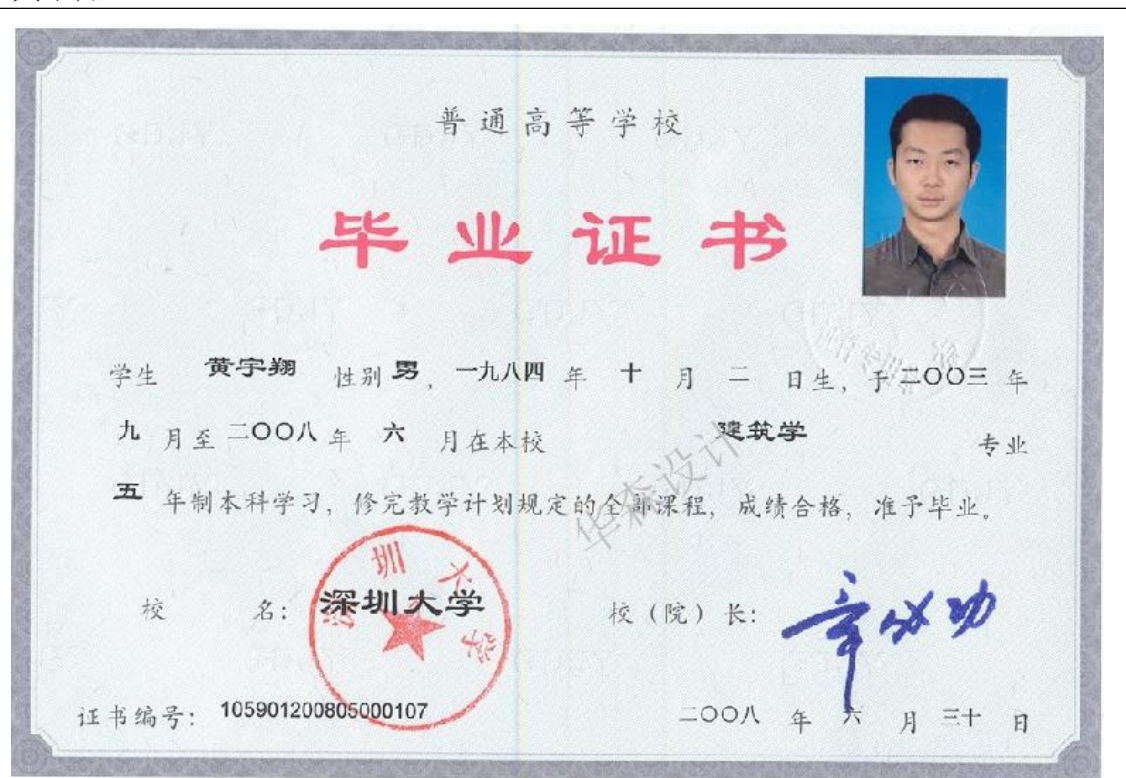 普通高等学校
毕业证书
学生 黄宇翔 性别 男, 一九八四 年 十 月 二 日生, 于二〇〇三 年
九 月至 二〇〇八 年 六 月在本校 建筑学 专业
五 年制本科学习, 修完教学计划规定的全部课程, 成绩合格, 准予毕业。
华森设计
校 名: 深圳大学 校（院）长: 章必功
深圳大学
证书编号: 105901200805000107 二〇〇八 年 六 月 三十 日